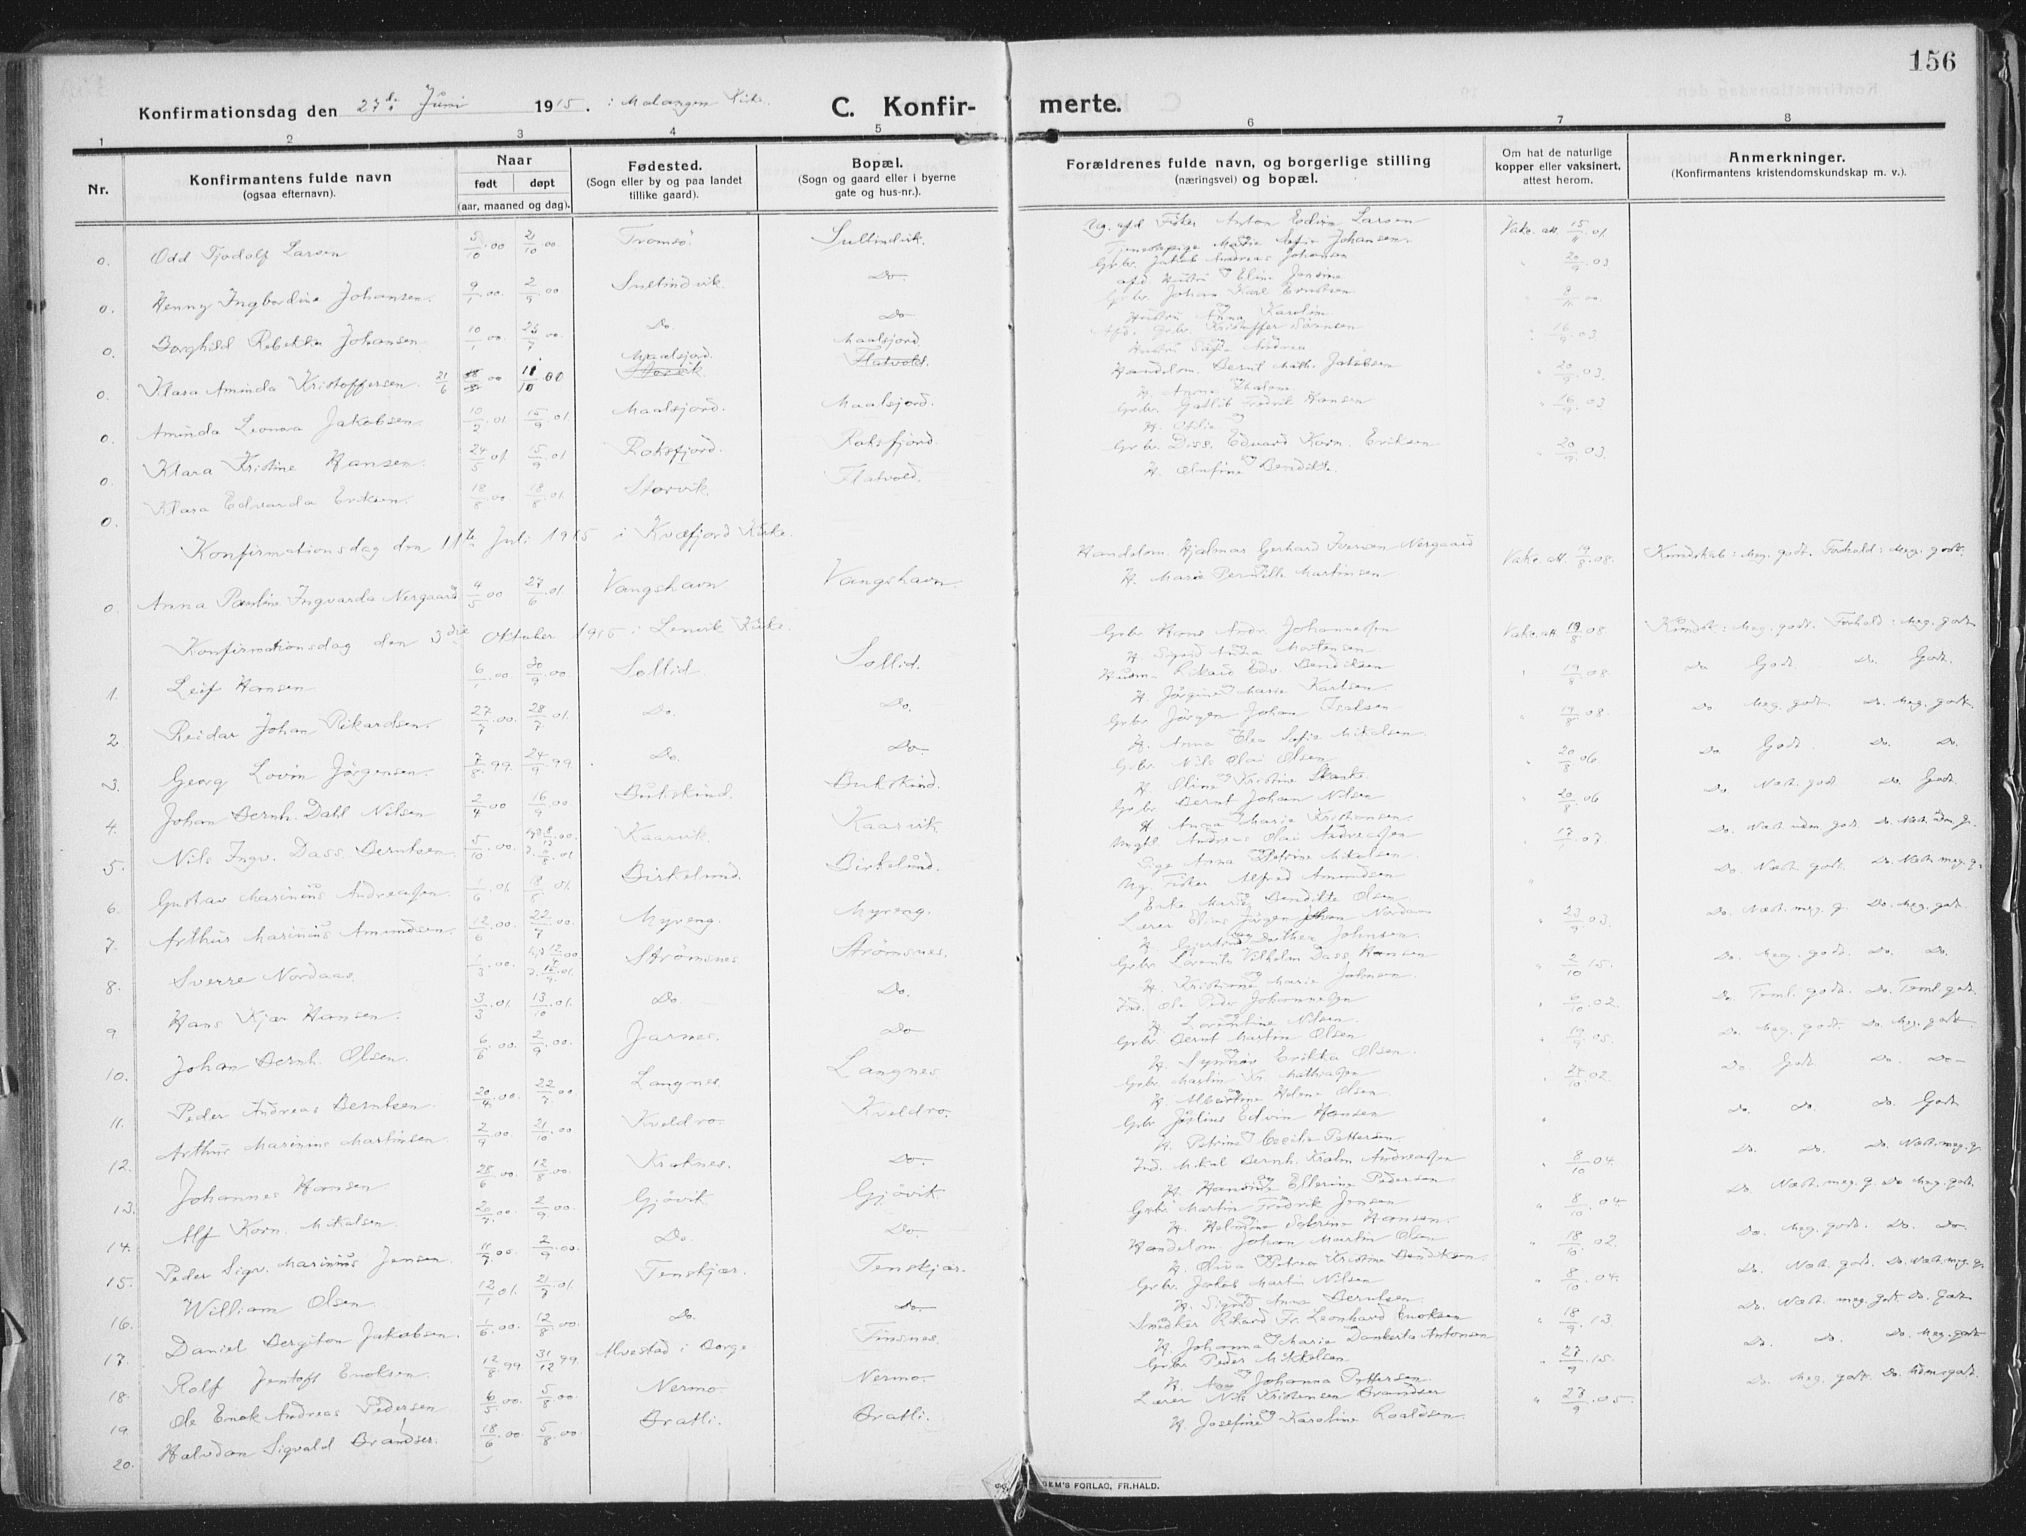 156
Konfirmationsdag den 27de Juni 1915. i Malangen Kirke.
C. Konfir-
merte.
1 2 3 4 5 6 7 8
Nr.
Konfirmantens fulde navn
(ogsaa efternavn).
Naar
født døpt
(aar, maaned og dag).
Fødested.
(Sogn eller by og paa landet
tillike gaard).
Bopæl.
(Sogn og gaard eller i byerne
gate og hus-nr.).
Forældrenes fulde navn, og borgerlige stilling
(næringsvei) og bopæl.
Om hat de naturlige
kopper eller vaksinert,
attest herom.
Anmerkninger.
(Konfirmantens kristendomskundskap m. v.).
0. Odd Tjodolf Larsen Tromsø. Sultindvik.
Ug. afd. Fisker Anton Edvin Larsen
Tjenestepige Marie Sofie Johansen. Vakc. att. 15/11.01
0. Henny Ingbordine Johansen. 9/1.00 2/9.00 Sultindvik. Do
Grbr. Jakob Andreas Johansen
afd. Hustru Eline Jansine 20/9.03
0. Borghild Rebekka Johansen 10/1.00 Do. Do
Grbr. Johan Karl Ernstsen
Hustru Anna Karolin
0. Klara Aminda Kristoffersen 21/6 00 11/10.00 Maalsjord. Storvik Maalsjord. Flatvold.
Afd. Grbr. Kristoffer Sørensen
Hustru Sofie Andrea 16/9.03
0. Aminda Leonora Jakobsen. 15/9.01. Maalsjord. Maalsjord.
Handelsm. Bernt Math. Jakobsen
H. Anna 20/9.03.
0. Klara Kristine Hansen. 24/5.01. 15/9.01 Roksfjord. Roksfjord.
Grbr. Gotlib Fredrik Hansen
H. Otilie 16/9.03
0. Klara Edvarda Eriksen. 18/8.00 18/8.01. Storvik. Flatvold.
Grbr. Diss. Edvard Korn. Eriksen
H. Olufine Bendikte. 20/9.03.
Konfirmationsdag den 11te Juli 1915 i Kvæfjord Kirke.
0. Anna Pauline Ingvarda Nergaard 4/5 00 27/6.01. Vangshavn Vangshavn.
Handelsm. Hjalmar Gerhard Iversen Nergaard
H. Marie Pernille Martinsen Vakc. att. 19/8.08. Kundskab: Meg. godt. Forhold: Meg. godt.
Konfirmationsdag den 3die Oktober 1915 i Lenvik Kirke.
1. Leif Hansen 6/1.00 30/9.00 Sollid. Sollid.
Grbr. Hans Andr. Johannessen
H. Sigrid Andrea Mortensen Vakc. att. 19/8.08. Kundsk: Meg. godt. Forhold: Meg. godt.
2 Reidar Johan Rikardsen. 27/7.00. 28/7.01. Do. Do.
Husm. Rikard Edv. Bendiksen
H. Jørgine Marie Karlsen. 19/8.08. Do Godt. Do. Godt.
3. Georg Lovin Jørgensen. 7/8.99. 24/9.99. Do. Do
Grbr. Jørgen Johan Isaksen
H. Anna Elea Sofie Mikalsen. 19/8.08. Do Meg. godt. Do. Meg. godt.
4. Johan Bernh. Dahl Nilsen 2/4.00 16/9.00 Bukskind. Bukskind.
Grbr. Nils Olai Olsen
H. Oline Kristine Skarke 20/8.06 Do. Godt. Do. Do.
5. Nils Ingv. Dass. Berntsen. 5/10.00. Kaarvik. Kaarvik.
Grbr. Bernt Johan Nilsen
H. Anna Marie Kristiansen. 20/8.06 Do. Næst. godt. Do. Godt.
6. Gustav Marinius Andreassen. 1/6.01. 18/8.01. Birkelund. Birkelund.
Ungkl. Andreas Olai Andreassen
Pige Anna Petrine Mikalsen. Do. Næst. uden godt. Do. Næst. uden g.
7. Arthur Marinius Amundsen. 12/6.00. 22/7.00. Myreng. Myreng.
Ug. Fisker Alfred Amundsen
Enke Marie Bendikte Olsen Do. Næst. godt. Do. Næst. meg. g.
8. Sverre Nordaas. 1/3.00. Strømsnes Strømsnes.
Lærer Elias Jørgen Johan Nordaas
H. Gjertrud Dorthea Johnsen. 23/9.03. Do. Næst. meg. g. Do. Meg. godt.
9 Hans Kjær Hansen. 3/3.01. 13/10.01. Do. Do.
Grbr. Lorents Vilhelm Dass Hansen
H. Kristianne Marie Johnsen. 2/10.15. Do. Meg. godt. Do. Do.
10. Johan Bernh. Olsen. 6/6.00. 2/9.00. Jarnes. Do
Ind. Ole Peder Johannessen
H. Lorentine Nilsen. 6/10.02. Do. Teml. godt. Do. Teml. godt.
11. Peder Andreas Berntsen. 20/4.00. 22/7.00 Langnes Langnes
Grbr. Bernt Martin Olsen
H. Synnøv Erikka Olsen. 19/9.05. Do. Meg. godt. Do. Meg. godt
12. Arthur Marinius Martinsen. 2/9.00. 21/10.00 Kveldro. Kveldro.
Grbr. Martin Kr. Mathiassen
H. Albertine Helene Olsen. 24/10.02. Do. Godt Do. Do
13. Johannes Hansen 28/6.00. 12/8.00. Kraknes. Do.
Grbr. Julius Edvin Hansen
H. Petrine Cecilie Pettersen. Do. Do. Do. Godt
14. Alf Korn. Mikalsen. 20/7.00. 2/9.00. Gjövik Gjövik
Ind. Mikal Bernh. Kralm Andreassen
H. Hansine Ellerine Pedersen 8/10.04. Do. Do. Do. Næst. meg. g.
15. Peder Sigv. Marinius Jensen. 11/7.00. 2/9.00. Do. Do.
Grbr. Martin Fredrik Jensen
H. Helmine Sabrine Hansen. 8/10.04. Do. Næst. meg. g. Do Meg. godt.
16. William Olsen 12/1.01. 21/7.01. Tenskjær. Tenskjær.
Handelsm. Johan Martin Olsen
H. Olina Petrea Kristine Bendiksen. 18/10.02. Do. Meg. godt. Do. Do.
17. Daniel Bergiton Jakobsen. 1/6.00. 12/8.00. Do. Do.
Grbr. Jakob Martin Nilsen
H. Sigrid Anna Berntsen. 8/10.04. Do. Næst. godt. Do. Næst. meg. g.
18. Rolf Jentoft Enoksen. 12/8.99 31/12.99. Alvestad i Borge Finsnes.
Snedker Rikard Fr. Leonhard Enoksen
H. Johanna Marie Dankerta Antonsen 18/9.13. Do. Næst. meg. godt Do. Godt
19. Ole Enok Andreas Pedersen 6/5.00. 5/8.00. Nermo. Nermo.
Grbr. Peder Mikkelsen.
H. Johanna Pettersen. 27/9.15. Do. Do. Do. Meg. godt
20. Halvdan Sigvald Brandser. 18/6.00. 5/8.00 Bratli. Bratli.
Lærer Nils Kristensen Brandser
H. Josefine Karoline Roaldsen. 27/9.05. Do. Meg. godt. Do.
DEM'S FORLAG, FR.HALD.